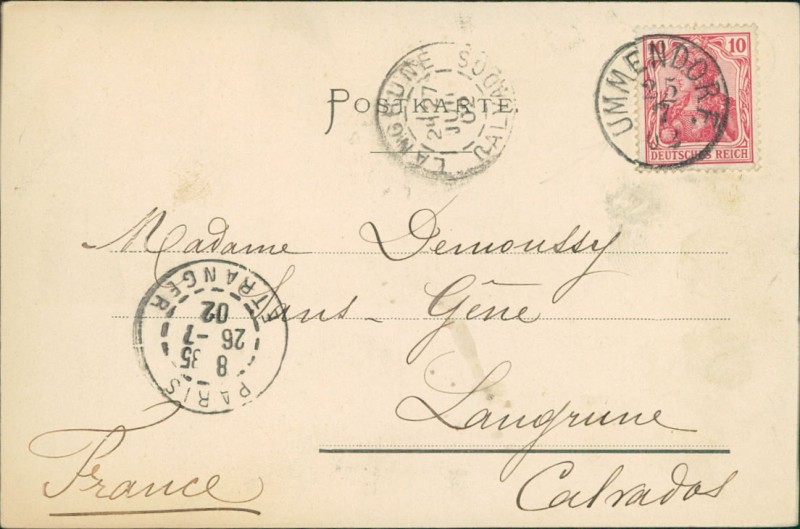 10 10
DEUTSCHES REICH
UMMENDORF
25
7
LANGRUNE CALVADOS
27
JUIL
02
POSTKARTE.
Madame Demoussy
Sans-Gêne
Langrune
Calvados
France
PARIS ETRANGER
8 35
26 -7
02